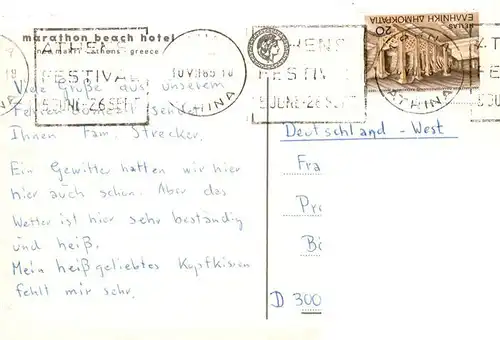 marathon beach hotel
nea makri - athens - greece
ATHENS
FESTIVAL
5 JUNE-26 SEPT
ATHINA
ΕΛΛΗΝΙΚΗ ΔΗΜΟΚΡΑΤΙΑ
HELLAS
20
Viele Grüße aus unserem
sendet
Ihnen Fam. Strecker.
Ein Gewitter hatten wir hier
hier auch schon. Aber das
Wetter ist hier sehr beständig
und heiß.
Mein heißgeliebtes Kopfkissen
fehlt mir sehr.
Deutschland - West
Fra
Pro
D 300